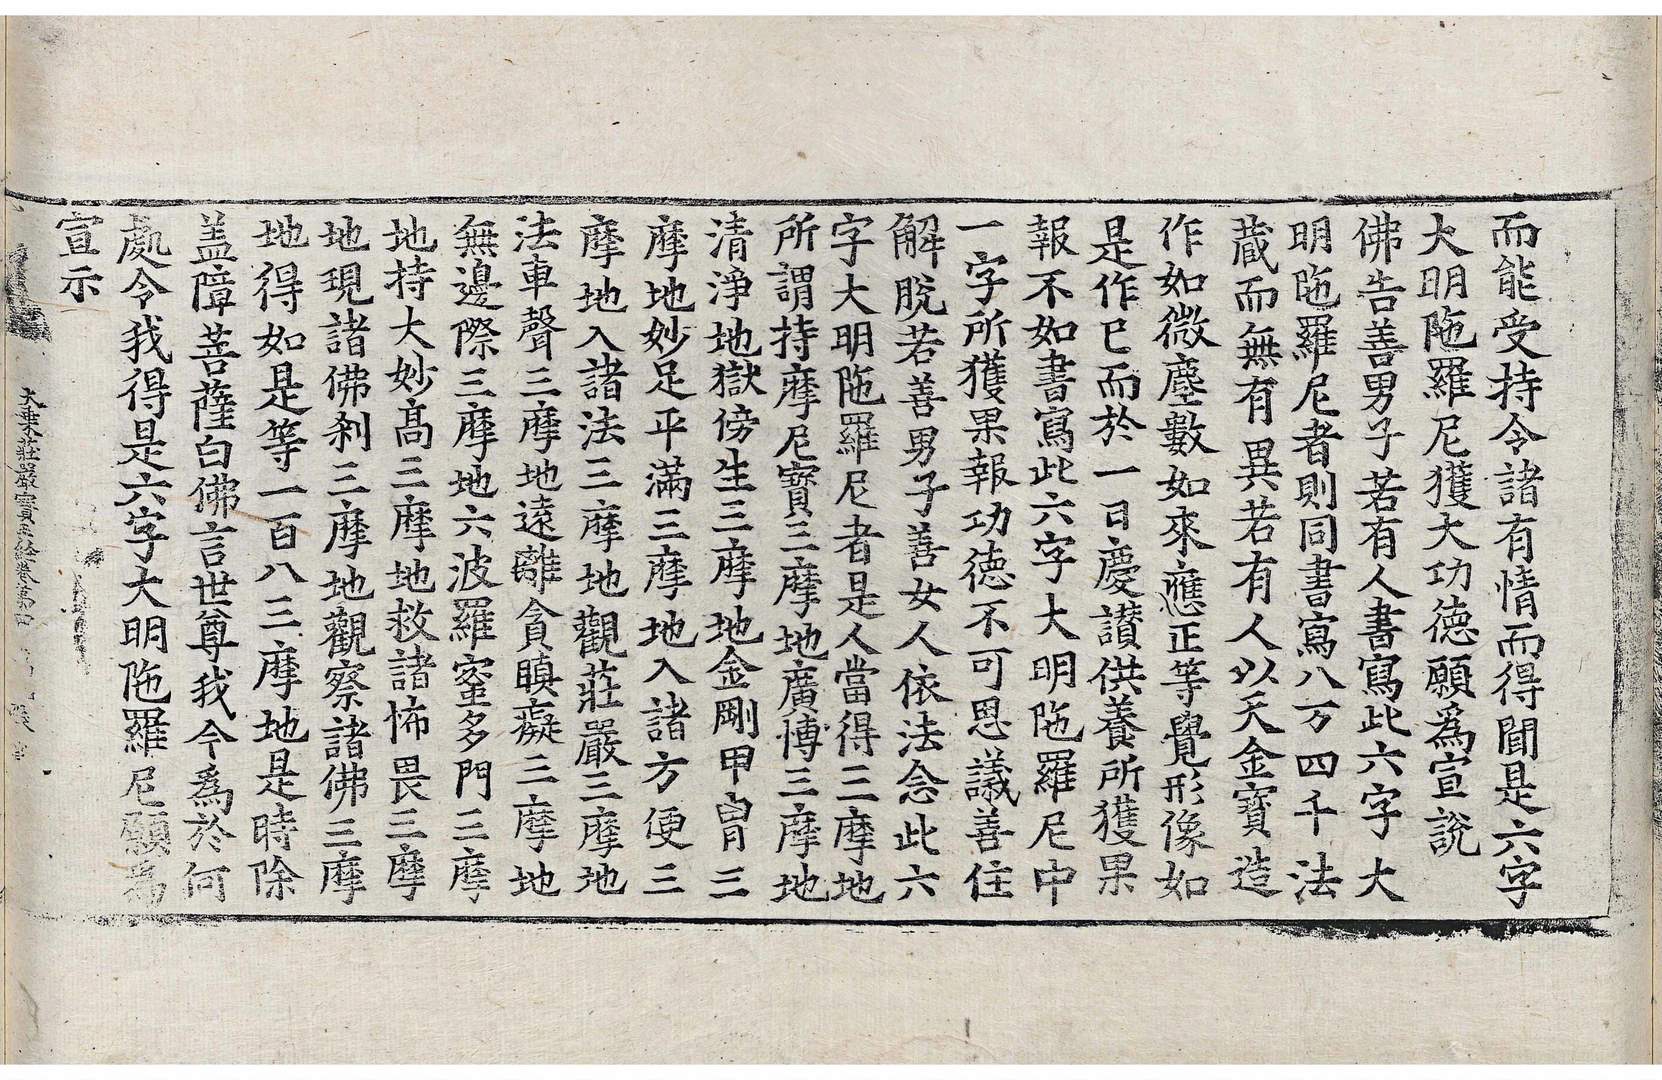 而能受持令諸有情而得聞是六字
大明陁羅尼獲大功德願爲宣說
佛告善男子若有人書寫此六字大
明陁羅尼者則同書寫八万四千法
藏而無有異若有人以天金寶造
作如微塵數如來應正等覺形像如
是作已而於一日慶讃供養所獲果
報不如書寫此六字大明陁羅尼中
一字所獲果報功德不可思議善住
解脫若善男子善女人依法念此六
字大明陁羅尼者是人當得三摩地
所謂持摩尼寶三摩地廣博三摩地
清淨地獄傍生三摩地金剛甲冑三
摩地妙足平滿三摩地入諸方便三
摩地入諸法三摩地觀莊嚴三摩地
法車聲三摩地遠離貪瞋癡三摩地
無邊際三摩地六波羅蜜多門三摩
地持大妙高三摩地救諸怖畏三摩
地現諸佛刹三摩地觀察諸佛三摩
地得如是等一百八三摩地是時除
盖障菩薩白佛言世尊我今爲於何
處令我得是六字大明陁羅尼願爲
宣示
大乗莊嚴寶王経卷第四